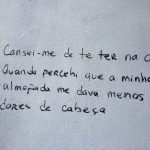 Cansei-me de te ter na c
Quando percebi que a minha
almofada me dava menos
dores de cabeça